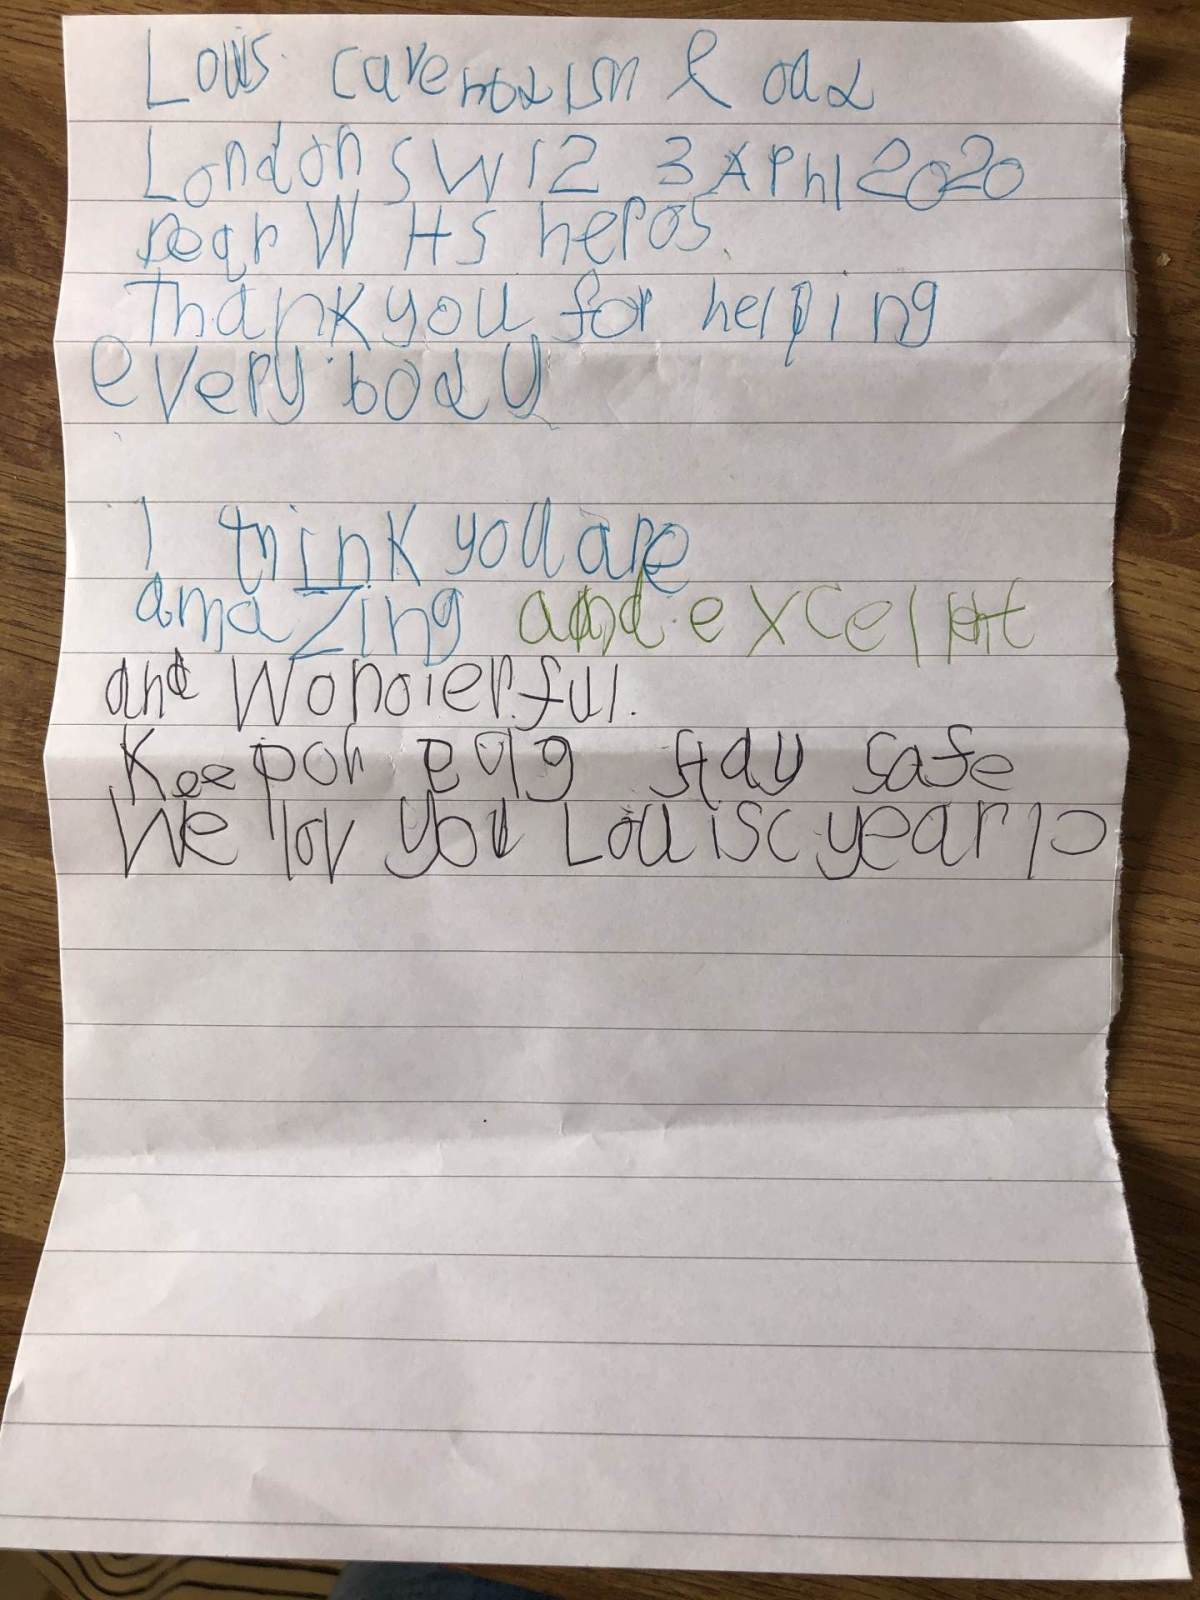 Louis cavendish Road
London SW12 3 April 2020
Dear NHS heros.
Thank you for helping
everybody
I think you are
amazing and excelent
and wonderful.
Keep on  stay safe
We lov you Louis c year 10